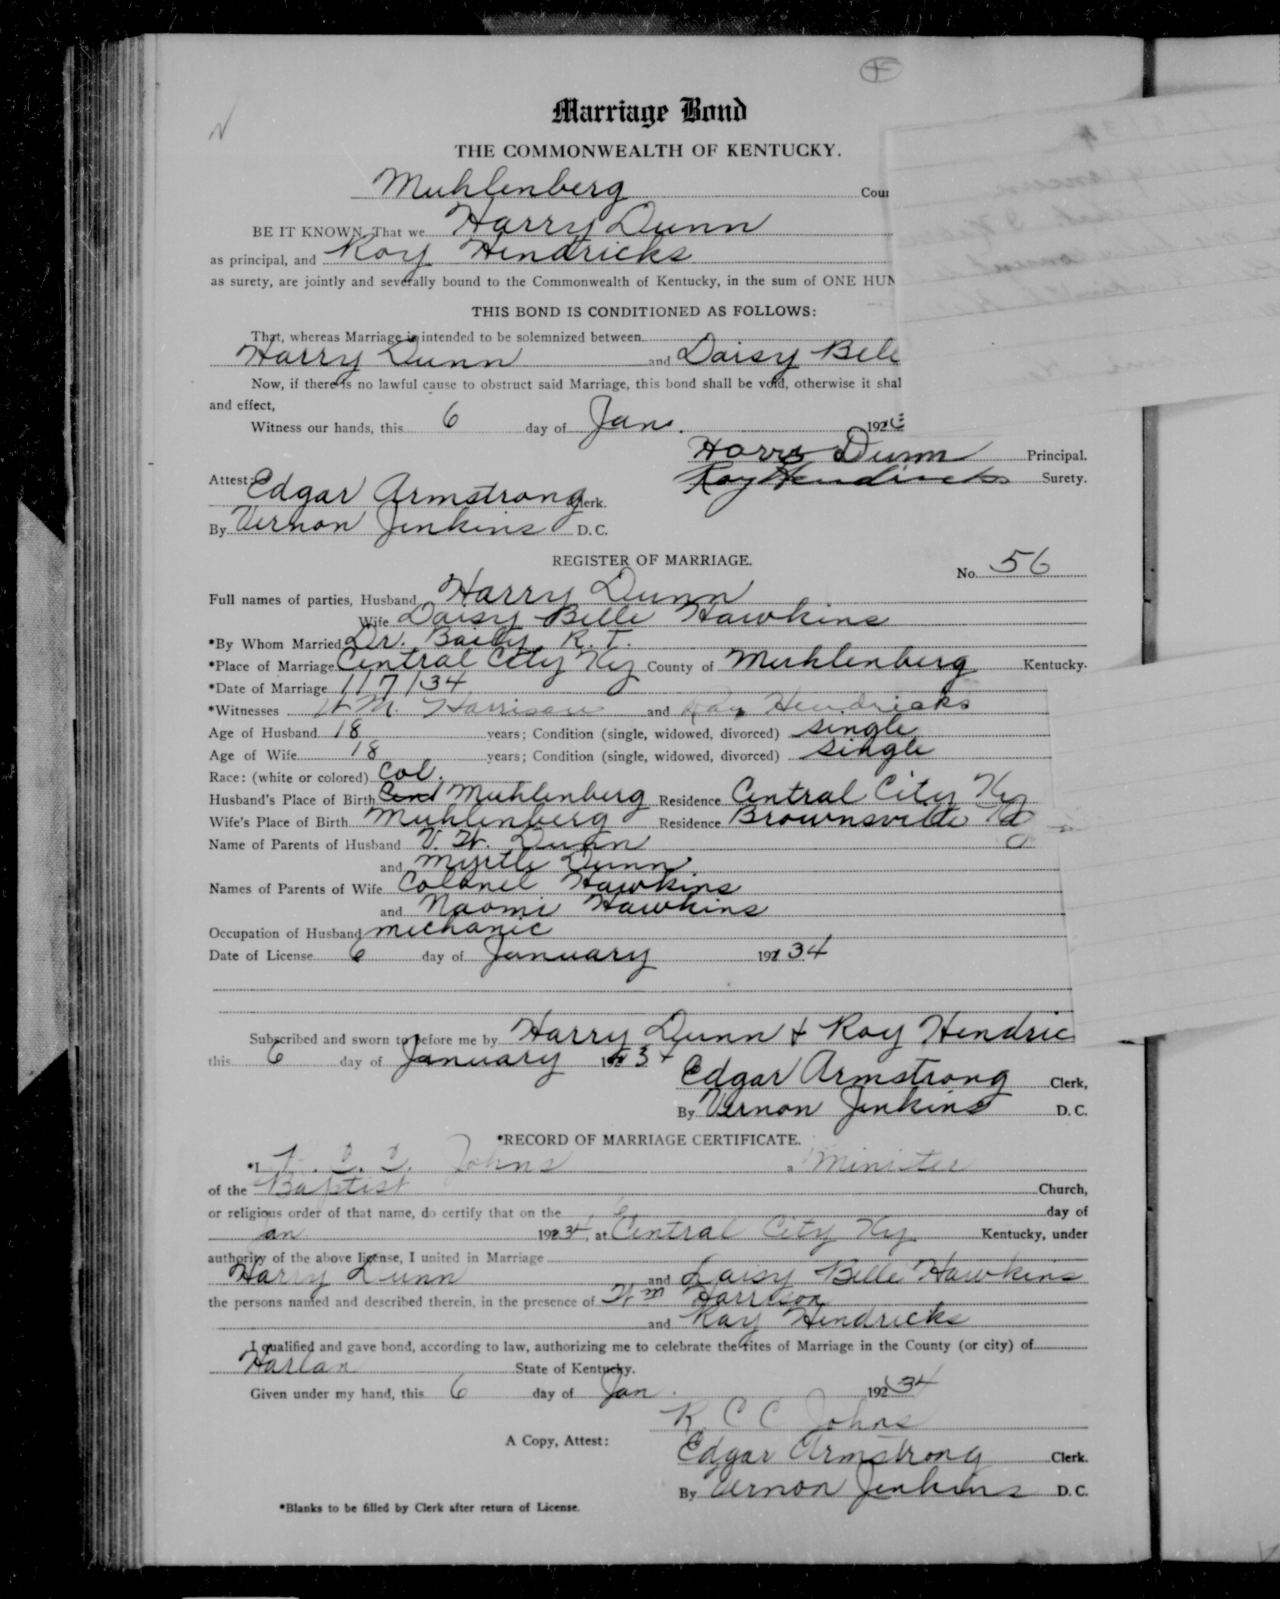 Marriage Bond
THE COMMONWEALTH OF KENTUCKY.
Muhlenberg Coun
BE IT KNOWN, That we Harry Dunn
as principal, and Roy Hendricks
as surety, are jointly and severally bound to the Commonwealth of Kentucky, in the sum of ONE HUN
THIS BOND IS CONDITIONED AS FOLLOWS:
That, whereas Marriage is intended to be solemnized between
Harry Dunn and Daisy Bell
Now, if there is no lawful cause to obstruct said Marriage, this bond shall be void, otherwise it shal
and effect,
Witness our hands, this 6 day of Jan. 192
Harry Dunn Principal.
Roy Hendricks Surety.
Attest: Edgar Armstrong Clerk.
By Vernon Jenkins D.C.
REGISTER OF MARRIAGE.
No. 56
Full names of parties, Husband Harry Dunn
Wife Daisy Belle Hawkins
*By Whom Married Dr. Baily R.T.
*Place of Marriage Central City Ky County of Muhlenberg Kentucky.
*Date of Marriage 1/7/34
*Witnesses W.M. Harrison and Roy Hendricks
Age of Husband 18 years; Condition (single, widowed, divorced) single
Age of Wife 18 years; Condition (single, widowed, divorced) single
Race: (white or colored) Col.
Husband's Place of Birth Cent Muhlenberg Residence Central City Ky
Wife's Place of Birth Muhlenberg Residence Brownsville Ky
Name of Parents of Husband V. W. Dunn
and Myrtle Dunn
Names of Parents of Wife Colonel Hawkins
and Naomi Hawkins
Occupation of Husband mechanic
Date of License 6 day of January 192 34
Subscribed and sworn to before me by Harry Dunn & Roy Hendric
this 6 day of January 34
Edgar Armstrong Clerk,
By Vernon Jenkins D.C.
*RECORD OF MARRIAGE CERTIFICATE.
*I R. C. C. Johns a Minister
of the Baptist Church,
or religious order of that name, do certify that on the 6 day of
Jan 192 34, at Central City Ky. Kentucky, under
authority of the above license, I united in Marriage
Harry Dunn and Daisy Belle Hawkins
the persons named and described therein, in the presence of Wm Harrison
and Ray Hendricks
I qualified and gave bond, according to law, authorizing me to celebrate the rites of Marriage in the County (or city) of
Harlan State of Kentucky.
Given under my hand, this 6 day of Jan. 192 34
R C C Johns
A Copy, Attest:
Edgar Armstrong Clerk.
By Vernon Jenkins D.C.
*Blanks to be filled by Clerk after return of License.